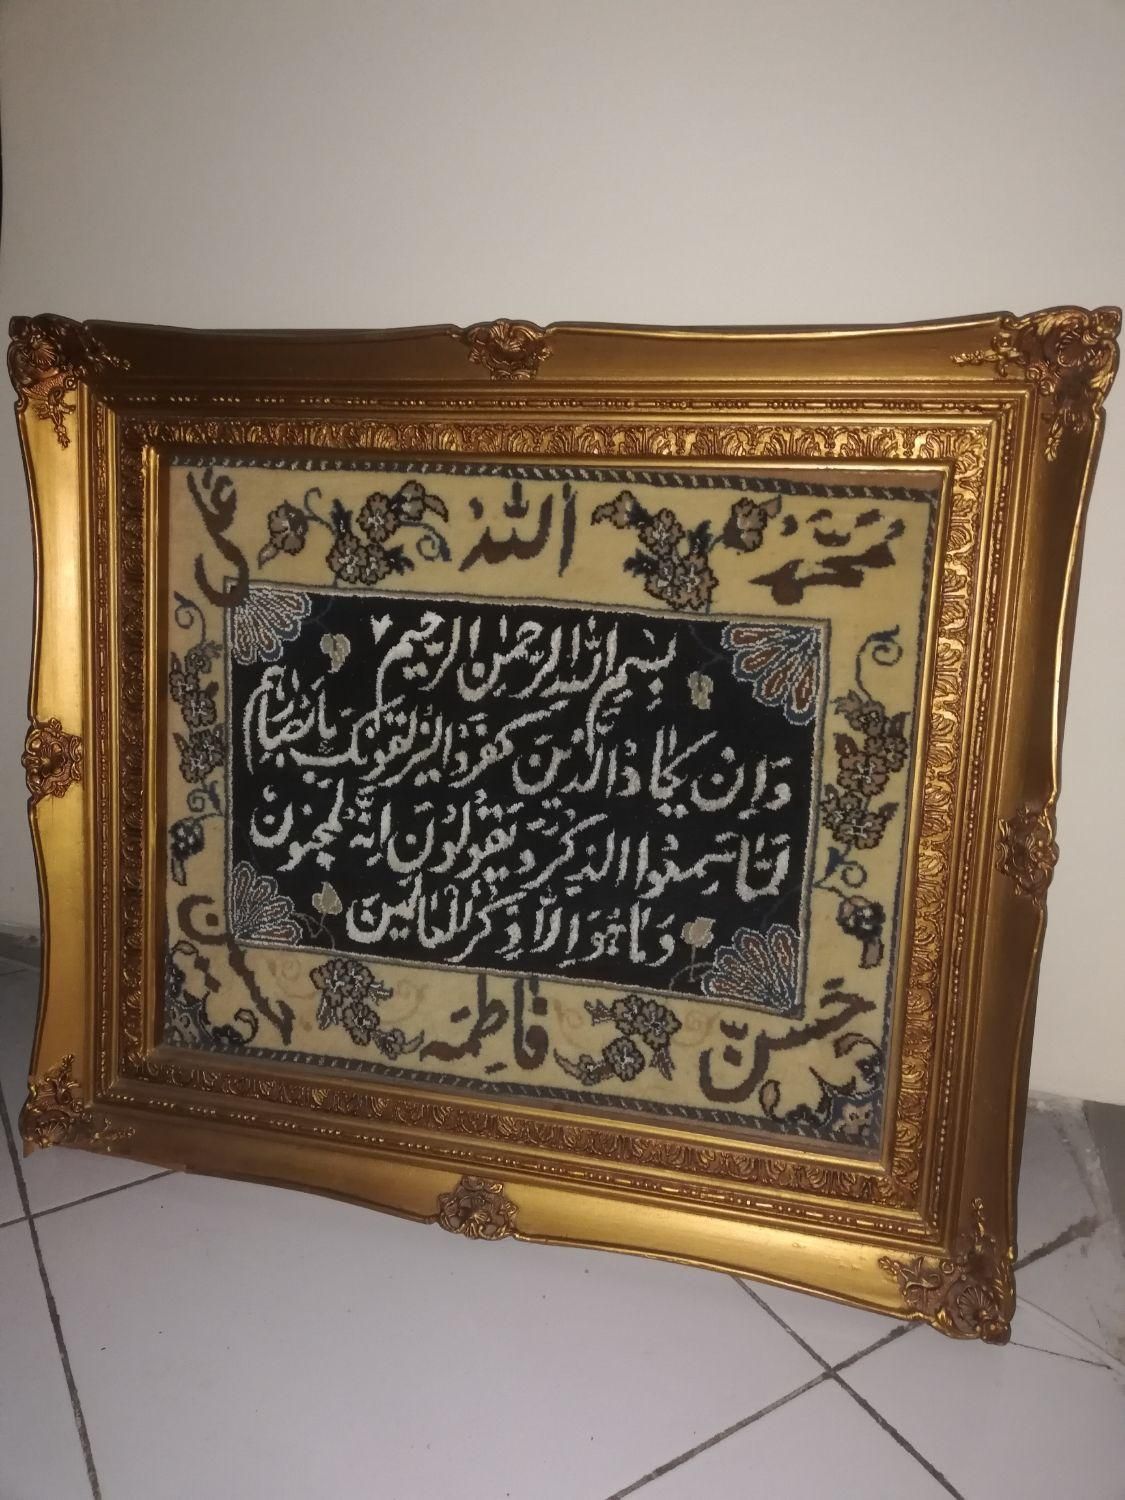 محمد
الله
علی
بِسْمِ اللهِ الرَّحْمٰنِ الرَّحیمِ
وَاِنْ یَکٰادُ الَّذینَ کَفَرُوا لَیُزْلِقُونَکَ بِاَبْصٰارِهِمْ
لَمّٰا سَمِعُوا الذِّکْرَ وَ یَقُولُونَ اِنَّهُ لَمَجْنُونٌ
وَمٰا هُوَ اِلاّٰ ذِکْرٌ لِلْعٰالَمینَ
حَسَن
فاطِمَه
حسین